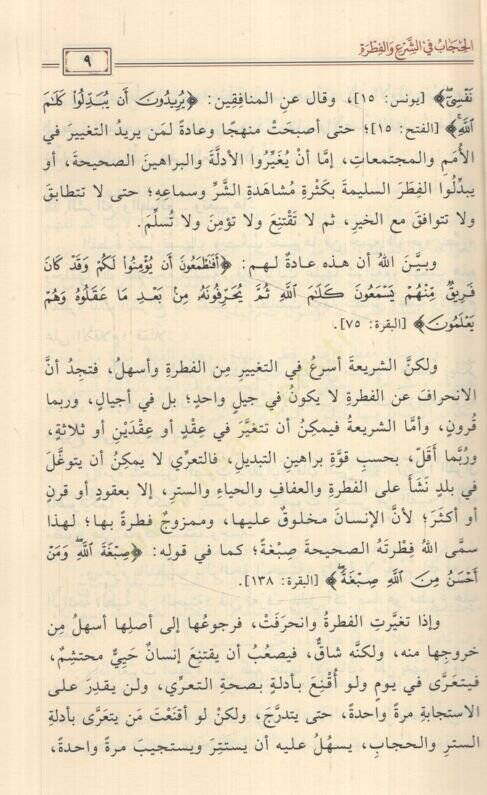 الحِجَابُ فِي الشَّرْعِ وَالفِطْرَةِ
٩
نَفْسِيٓ﴾ [يونس: ١٥]، وقال عنِ المنافِقِين: ﴿يُرِيدُونَ أَن يُبَدِّلُوا۟ كَلَـٰمَ
ٱللَّهِ﴾ [الفتح: ١٥]؛ حتى أصبحَتْ منهجًا وعادةً لمَن يريدُ التغييرَ في
الأُمَمِ والمجتمعاتِ، إمَّا أنْ يُغَيِّرُوا الأدلَّةَ والبراهينَ الصحيحةَ، أو
يبدِّلُوا الفِطَرَ السليمةَ بكَثْرةِ مُشاهَدةِ الشَّرِّ وسماعِهِ؛ حتى لا تتطابقَ
ولا تتوافقَ مع الخيرِ، ثم لا تَقْتنِعَ ولا تؤمِنَ ولا تُسلِّمَ.
وبيَّنَ اللهُ أن هذه عادةٌ لهم: ﴿أَفَتَطْمَعُونَ أَن يُؤْمِنُوا۟ لَكُمْ وَقَدْ كَانَ
فَرِيقٌ مِّنْهُمْ يَسْمَعُونَ كَلَـٰمَ ٱللَّهِ ثُمَّ يُحَرِّفُونَهُۥ مِنۢ بَعْدِ مَا عَقَلُوهُ وَهُمْ
يَعْلَمُونَ﴾ [البقرة: ٧٥].
ولكنَّ الشريعةَ أسرعُ في التغييرِ مِن الفطرةِ وأسهلُ، فتجِدُ أنَّ
الانحرافَ عن الفطرةِ لا يكونُ في جيلٍ واحدٍ؛ بل في أجيالٍ، وربما
قُرونٍ، وأمَّا الشريعةُ فيمكِنُ أن تتغيَّرَ في عِقْدٍ أو عِقْدَيْنِ أو ثلاثةٍ،
ورُبَّما أقَلَّ، بحسبِ قوَّةِ براهينِ التبديلِ، فالتعرِّي لا يمكنُ أن يتوغَّلَ
في بلدٍ نَشَأَ على الفطرةِ والعفافِ والحياءِ والسترِ، إلا بعقودٍ أو قرنٍ
أو أكثَرَ؛ لأنَّ الإنسانَ مخلوقٌ عليها، وممزوجٌ فطرةً بها؛ لهذا
سمَّى اللهُ فِطْرتَهُ الصحيحةَ صِبْغةً؛ كما في قولِه: ﴿صِبْغَةَ ٱللَّهِ ۖ وَمَنْ
أَحْسَنُ مِنَ ٱللَّهِ صِبْغَةً ۖ﴾ [البقرة: ١٣٨].
وإذا تغيَّرتِ الفطرةُ وانحرفَتْ، فرجوعُها إلى أصلِها أسهلُ مِن
خروجِها منه، ولكنَّه شاقٌّ، فيصعُبُ أن يقتنِعَ إنسانٌ حَيِيٌّ محتشِمٌ،
فيتعَرَّى في يومٍ ولو أُقْنِعَ بأدلةٍ بصحةِ التعرِّي، ولن يقدِرَ على
الاستجابةِ مرةً واحدةً، حتى يتدرَّجَ، ولكنْ لو أقنَعْتَ مَن يتعَرَّى بأدلةِ
السترِ والحجابِ، يسهُلُ عليه أن يستتِرَ ويستجيبَ مرةً واحدةً،